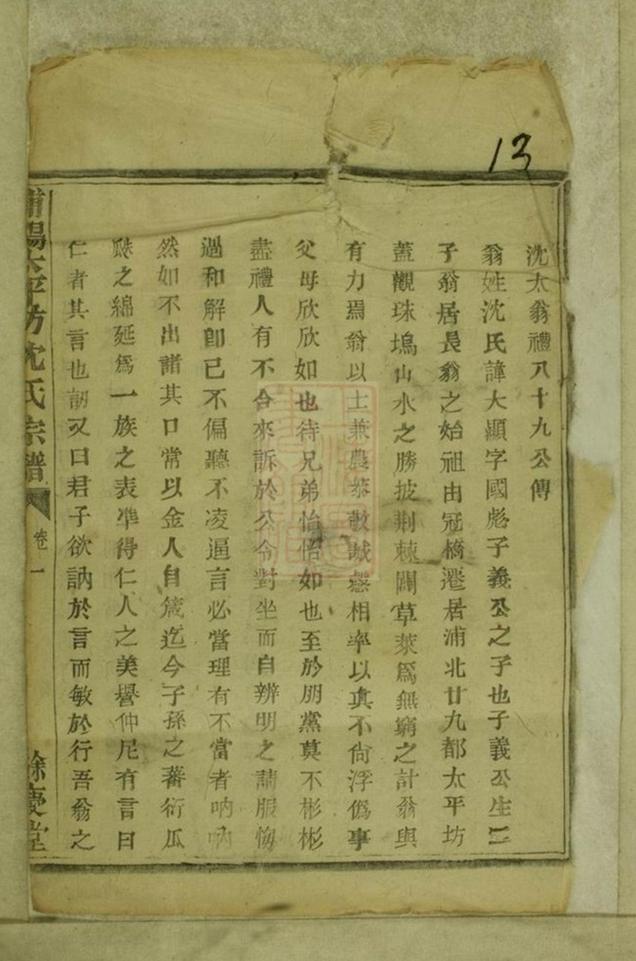 13
沈太翁禮八十九公傳
翁姓沈氏諱大顯字國彪子義公之子也子義公生二
子翁居長翁之始祖由冠橋遷居浦北廿九都太平坊
蓋觀珠塢山水之勝披荆棘闢草萊爲無窮之計翁與
有力焉翁以士兼農恭敬誠慤相率以真不尙浮僞事
父母欣欣如也待兄弟怡怡如也至於朋黨莫不彬彬
盡禮人有不合來訴於公令對坐而自辨明之請服悔
過和解卽已不偏聽不凌逼言必當理有不當者吶吶
然如不出諸其口常以金人自箴迄今子孫之蕃衍瓜
瓞之綿延爲一族之表準得仁人之美譽仲尼有言曰
仁者其言也訒又曰君子欲訥於言而敏於行吾翁之
浦陽太平坊沈氏宗譜 卷一 餘慶堂